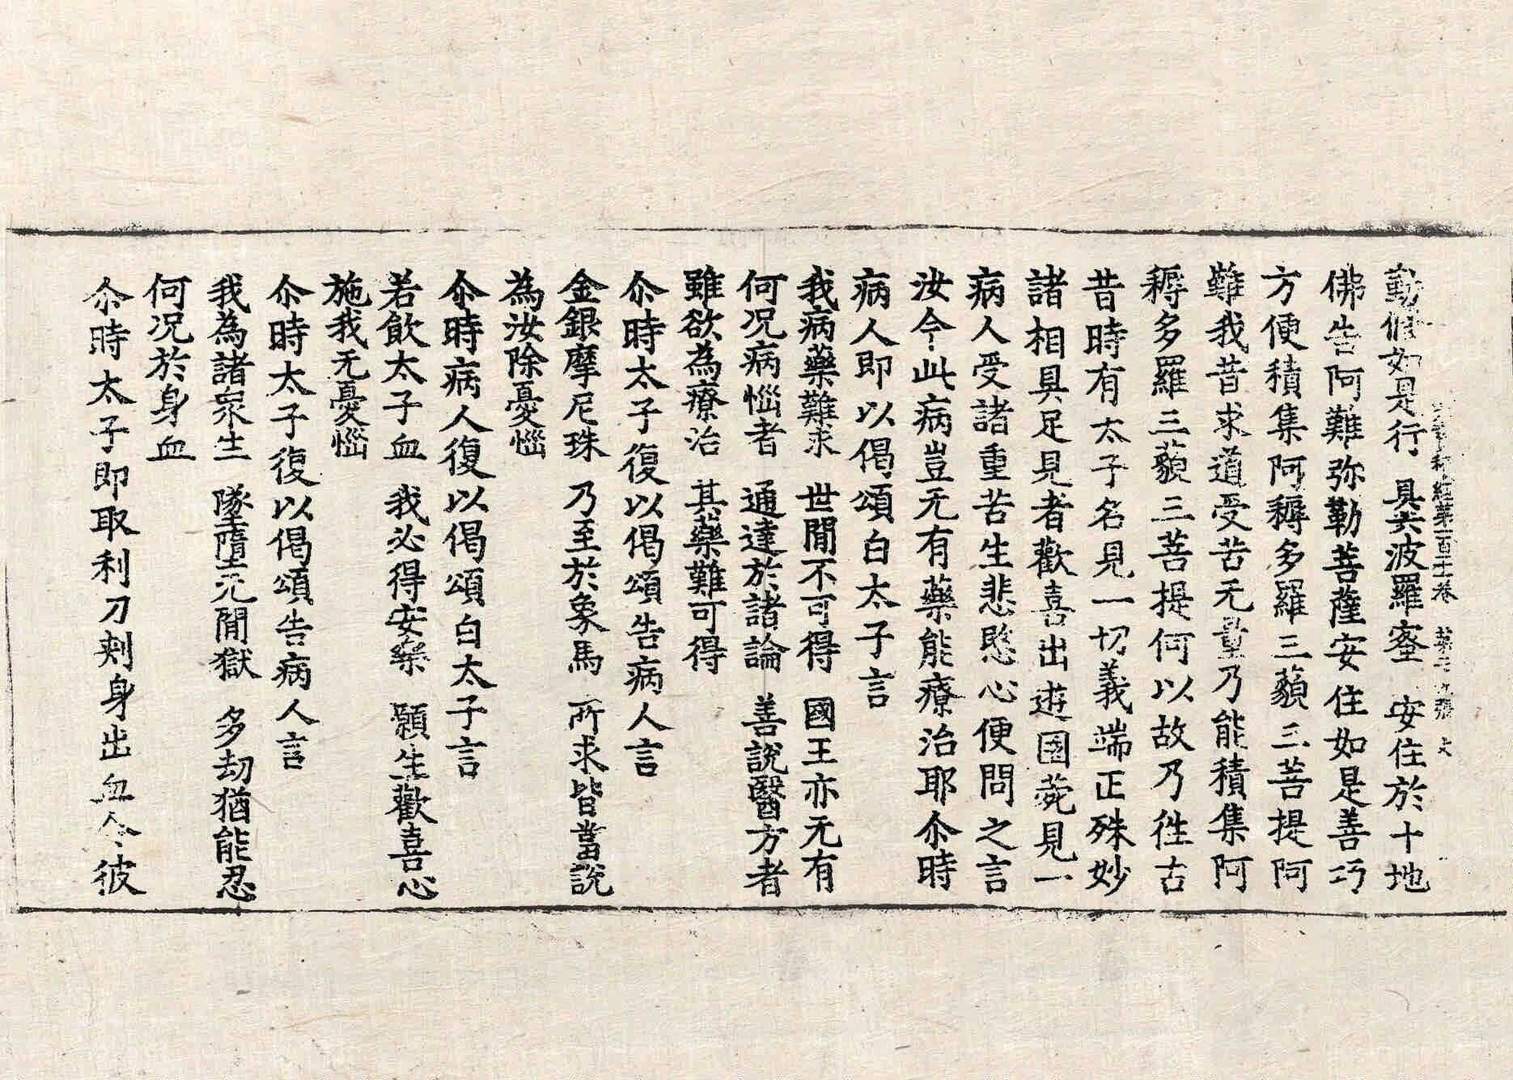 勤修如是行　具六波羅蜜　安住於十地
經第一百十一卷　第
佛告阿難弥勒菩薩安住如是善巧
方便積集阿耨多羅三藐三菩提阿
難我昔求道受苦无量乃能積集阿
耨多羅三藐三菩提何以故乃往古
昔時有太子名見一切義端正殊妙
諸相具足見者歡喜出遊國菀見一
病人受諸重苦生悲愍心便問之言
汝今此病豈无有藥能療治耶尒時
病人即以偈頌白太子言
我病藥難求　世閒不可得　國王亦无有
何况病惱者　通達於諸論　善說醫方者
雖欲為療治　其藥難可得
尒時太子復以偈頌告病人言
金銀摩尼珠　乃至於象馬　所求皆當說
為汝除憂惱
尒時病人復以偈頌白太子言
若飲太子血　我必得安樂　願生歡喜心
施我无憂惱
尒時太子復以偈頌告病人言
我為諸衆生　墜墮无閒獄　多劫猶能忍
何况於身血
尒時太子即取利刀刾身出血令彼